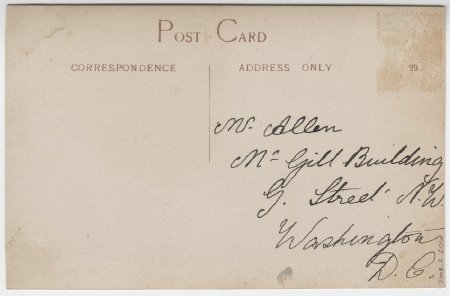 POST CARD
CORRESPONDENCE
ADDRESS ONLY
29
Mr Allen
Mc Gill Building
G. Street N.W.
Washington
D.C.